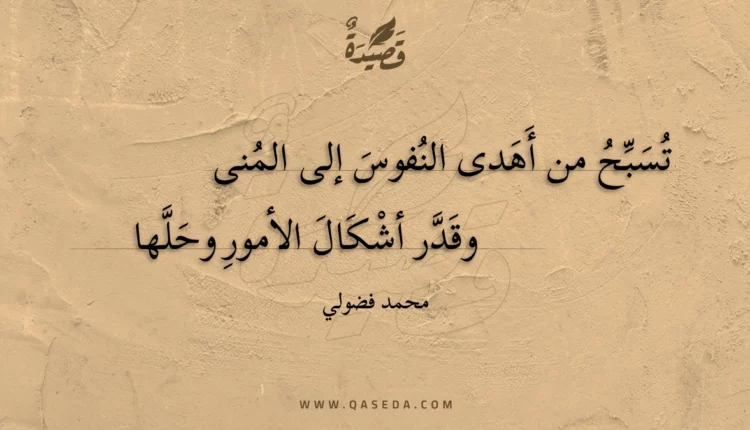 قَصِيْدَةٌ
تُسَبِّحُ من أَهَدى النُفوسَ إلى المُنى
وقَدَّر أشْكَالَ الأمورِ وحَلَّها
محمد فضولي
WWW.QASEDA.COM